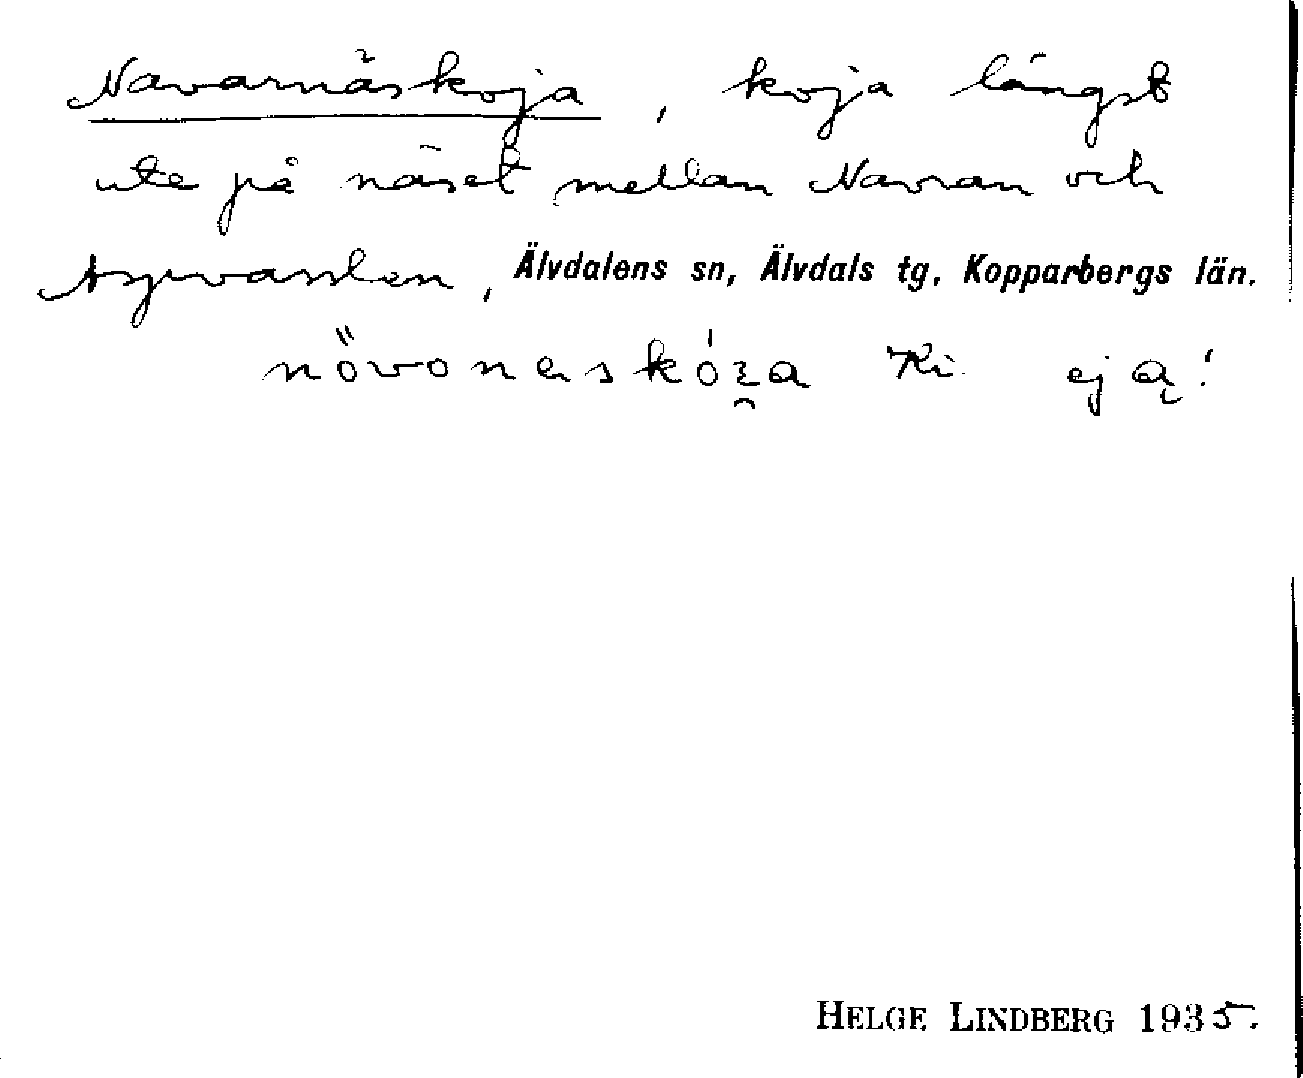 Navarnäskoja, koja längst
ute på näset mellan Navran och
Älvdalens sn, Älvdals tg, Kopparbergs län.
Ki. ej ą!
HELGE LINDBERG 1935.